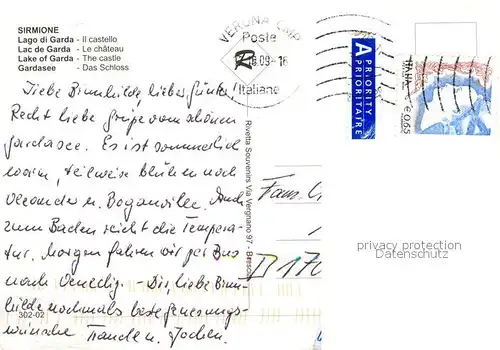 SIRMIONE
Lago di Garda - Il castello
Lac de Garda - Le château
Lake of Garda - The castle
Gardasee - Das Schloss
VERONA CMP
Poste
8.09-16
Italiane
A PRIORITY
PRIORITAIRE
ITALIA
€ 0,65
Liebe Brunhilde, lieber Günter!
Recht liebe Grüße vom schönen
Gardasee. Es ist sommerlich
warm, teilweise blühen noch
Oleander u. Boganvilie. Auch
zum Baden reicht die Tempera-
tur. Morgen fahren wir per Bus
nach Venedig. Dir, liebe Brun-
hilde nochmals beste Genesungs-
wünsche Traude u. Jochen.
Rivetta Souvenirs Via Vergnano 97 - Brescia
Fam.
D 170
302-02
privacy protection
Datenschutz